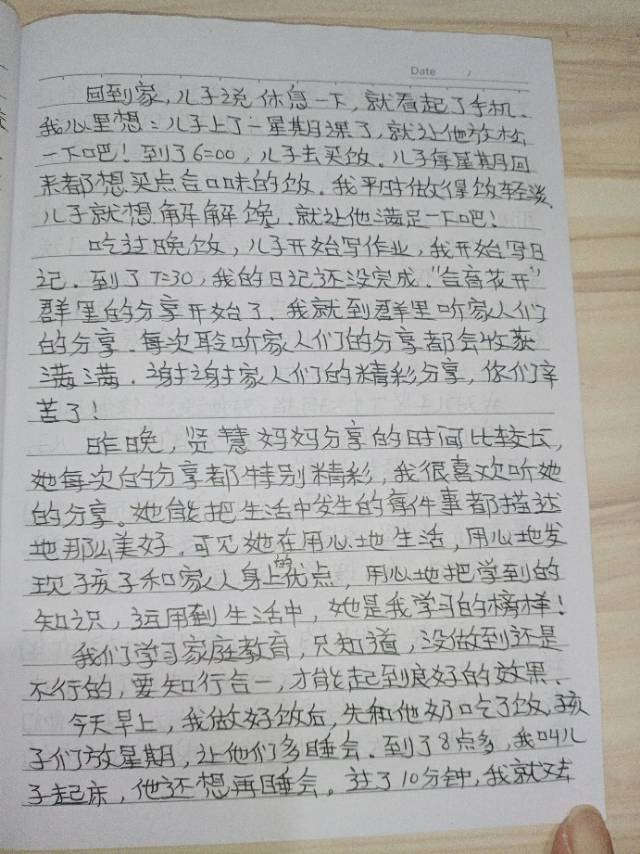 Date /
回到家，儿子说休息一下，就看起了手机。
我心里想：儿子上了一星期课了，就让他放松
一下吧！到了6:00，儿子去买饭。儿子每星期回
来都想买点合口味的饭。我平时做得饭轻淡，
儿子就想解解馋。就让他满足一下吧！
吃过晚饭，儿子开始写作业，我开始写日
记。到了7:30，我的日记还没完成。“合育花开”
群里的分享开始了。我就到群里听家人们
的分享。每次聆听家人们的分享都会收获
满满。谢谢家人们的精彩分享，你们辛
苦了！
昨晚，贤慧妈妈分享的时间比较长，
她每次的分享都特别精彩，我很喜欢听她
的分享。她能把生活中发生的每件事都描述
地那么美好。可见她在用心地生活，用心地发
现孩子和家人身上的优点，用心地把学到的
知识，运用到生活中，她是我学习的榜样！
我们学习家庭教育，只知道，没做到还是
不行的，要知行合一，才能起到良好的效果。
今天早上，我做好饭后，先和他奶吃了饭，孩
子们放星期，让他们多睡会。到了8点多，我叫儿
子起床，他还想再睡会。过了10分钟，我就又去